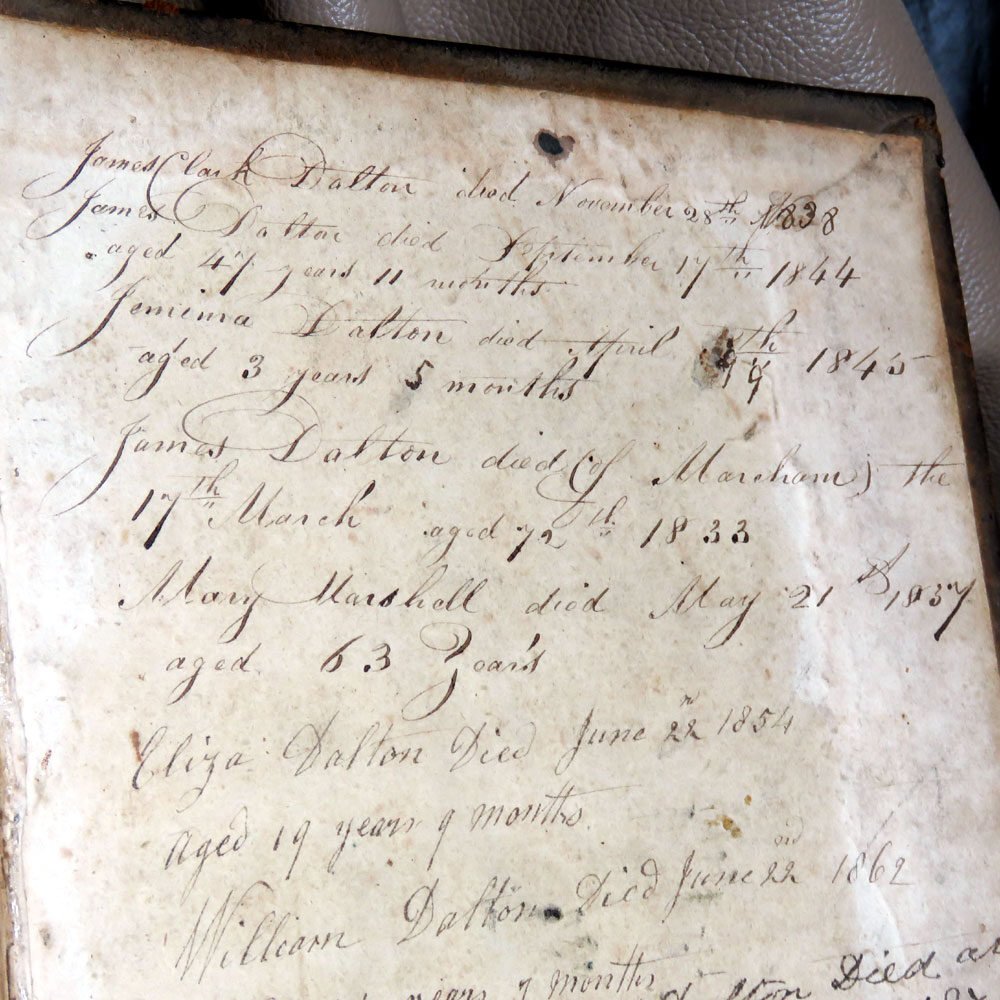 James Clark Dalton died November 28th 1838
James Dalton died September 17th 1844
aged 47 years 11 months
Jemima Dalton died April 1845
aged 3 years 5 months
James Dalton died (of Marcham) the
17th March aged 72 th 1833
Mary Marshell died May 21 st 1837
aged 63 Years
Eliza Dalton Died June 22 n 1854
Aged 19 years 9 months
William Dalton Died June 22nd 1862
years 9 months
Dalton Died at